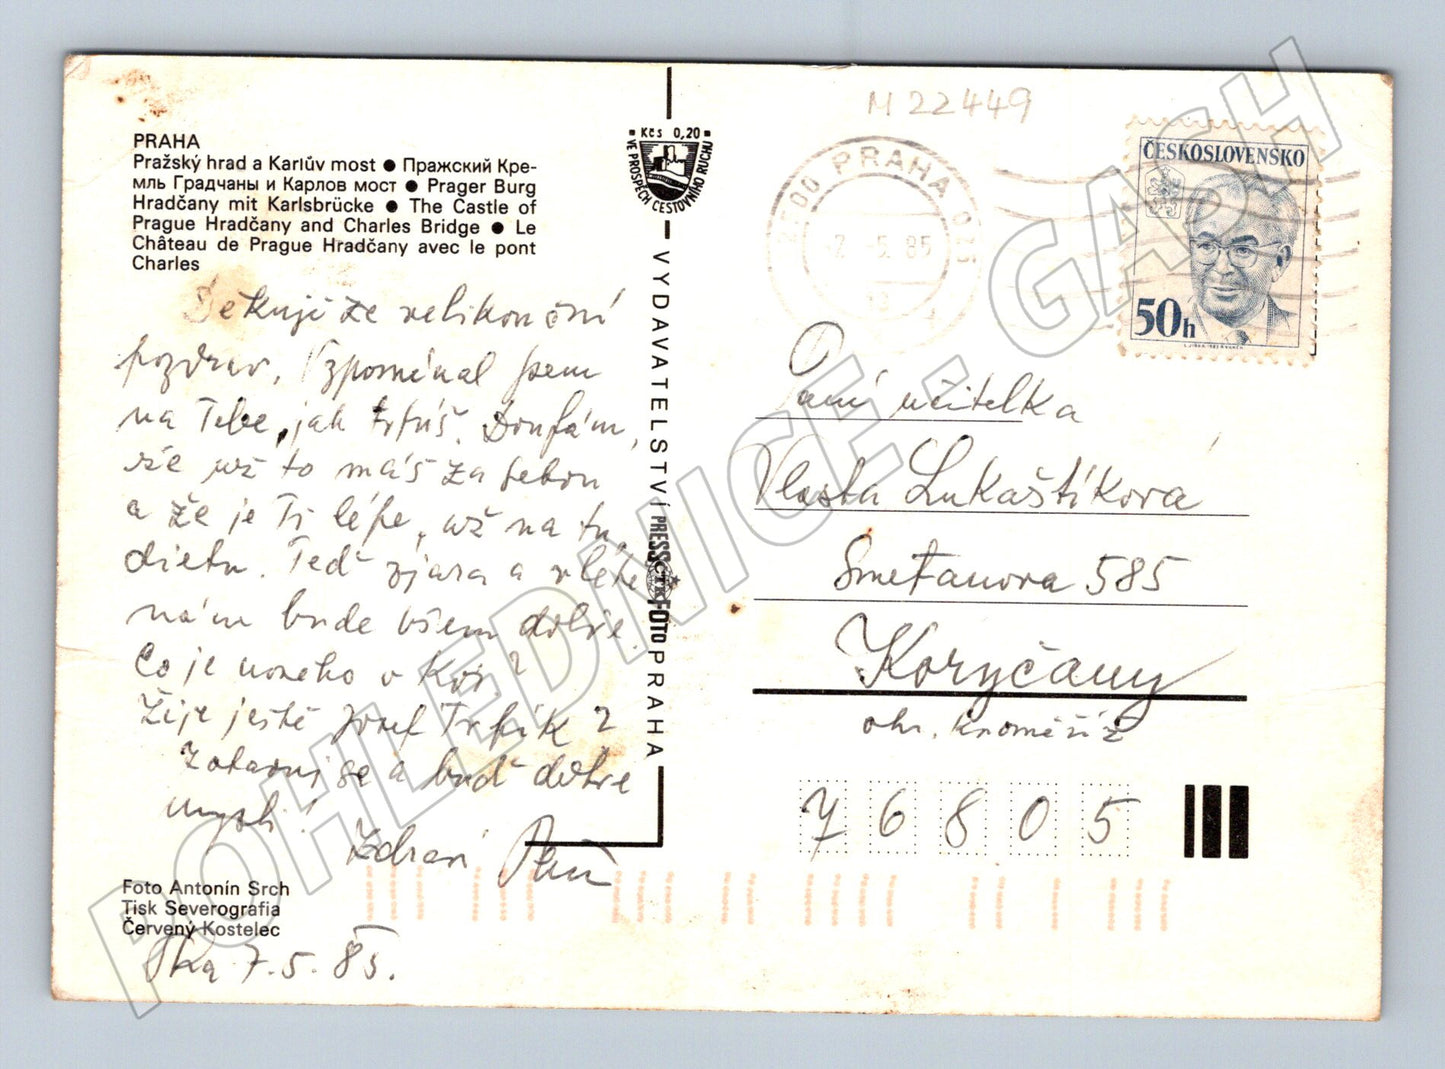 M 22449
PRAHA
Pražský hrad a Karlův most ● Пражский Кре-
мль Градчаны и Карлов мост ● Prager Burg
Hradčany mit Karlsbrücke ● The Castle of
Prague Hradčany and Charles Bridge ● Le
Château de Prague Hradčany avec le pont
Charles
Děkuji ze velikonoční
pozdrav. Vzpomínal jsem
na Tebe, jak trpíš. Doufám,
že už to máš za sebou
a že je Ti lépe, už na tu
dietu. Teď zjara a v létě
nám bude všem dobře.
Co je nového v Kor?
Žije ještě Josef Trpík?
Zotavuj se a buď dobré
mysli!
Zdraví
Foto Antonín Srch
Tisk Severografia
Červený Kostelec
Pha 7.5.85.
Kčs 0,20
VE PROSPĚCH CESTOVNÍHO RUCHU
VYDAVATELSTVÍ PRESSFOTO PRAHA
ČTK
PRAHA 025
5. 85
ČESKOSLOVENSKO
50h
Paní učitelka
Vlasta Lukaštíková
Smetanova 585
Koryčany
okr. Kroměříž
76805
POHLEDNICE.GASH